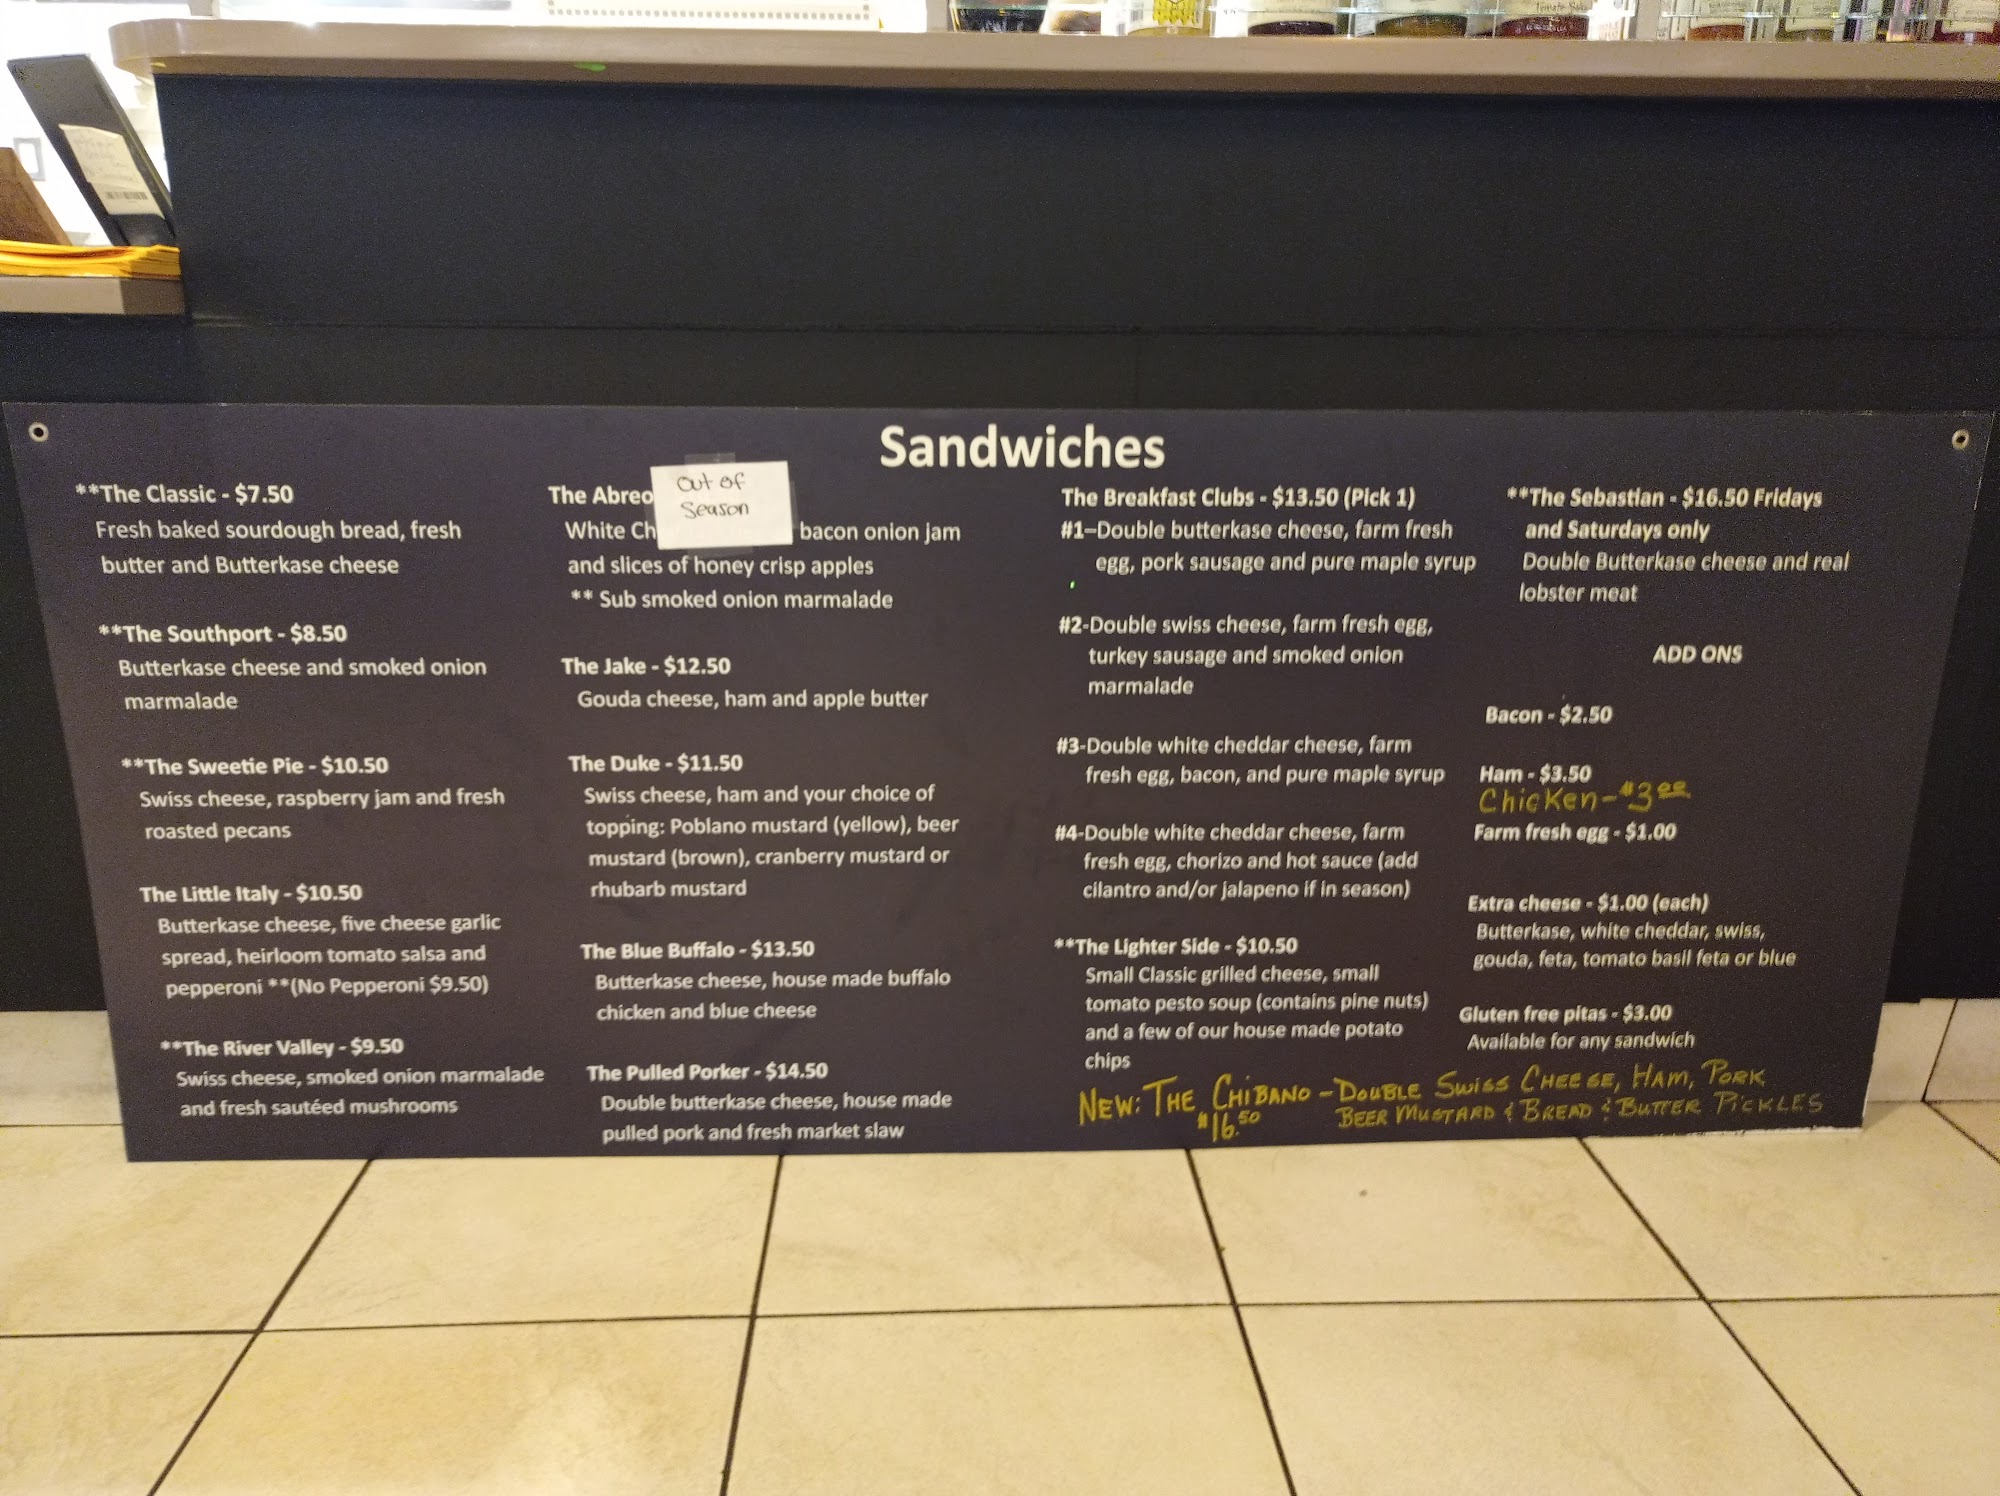 Sandwiches
**The Classic - $7.50
Fresh baked sourdough bread, fresh
butter and Butterkase cheese
**The Southport - $8.50
Butterkase cheese and smoked onion
marmalade
**The Sweetie Pie - $10.50
Swiss cheese, raspberry jam and fresh
roasted pecans
The Little Italy - $10.50
Butterkase cheese, five cheese garlic
spread, heirloom tomato salsa and
pepperoni **(No Pepperoni $9.50)
**The River Valley - $9.50
Swiss cheese, smoked onion marmalade
and fresh sautéed mushrooms
The Abreo
Out of
Season
White Ch bacon onion jam
and slices of honey crisp apples
** Sub smoked onion marmalade
The Jake - $12.50
Gouda cheese, ham and apple butter
The Duke - $11.50
Swiss cheese, ham and your choice of
topping: Poblano mustard (yellow), beer
mustard (brown), cranberry mustard or
rhubarb mustard
The Blue Buffalo - $13.50
Butterkase cheese, house made buffalo
chicken and blue cheese
The Pulled Porker - $14.50
Double butterkase cheese, house made
pulled pork and fresh market slaw
The Breakfast Clubs - $13.50 (Pick 1)
#1–Double butterkase cheese, farm fresh
egg, pork sausage and pure maple syrup
#2-Double swiss cheese, farm fresh egg,
turkey sausage and smoked onion
marmalade
#3-Double white cheddar cheese, farm
fresh egg, bacon, and pure maple syrup
#4-Double white cheddar cheese, farm
fresh egg, chorizo and hot sauce (add
cilantro and/or jalapeno if in season)
**The Lighter Side - $10.50
Small Classic grilled cheese, small
tomato pesto soup (contains pine nuts)
and a few of our house made potato
chips
**The Sebastian - $16.50 Fridays
and Saturdays only
Double Butterkase cheese and real
lobster meat
ADD ONS
Bacon - $2.50
Ham - $3.50
Chicken - $3.00
Farm fresh egg - $1.00
Extra cheese - $1.00 (each)
Butterkase, white cheddar, swiss,
gouda, feta, tomato basil feta or blue
Gluten free pitas - $3.00
Available for any sandwich
NEW: THE CHIBANO - DOUBLE SWISS CHEESE, HAM, PORK
$16.50 BEER MUSTARD & BREAD & BUTTER PICKLES